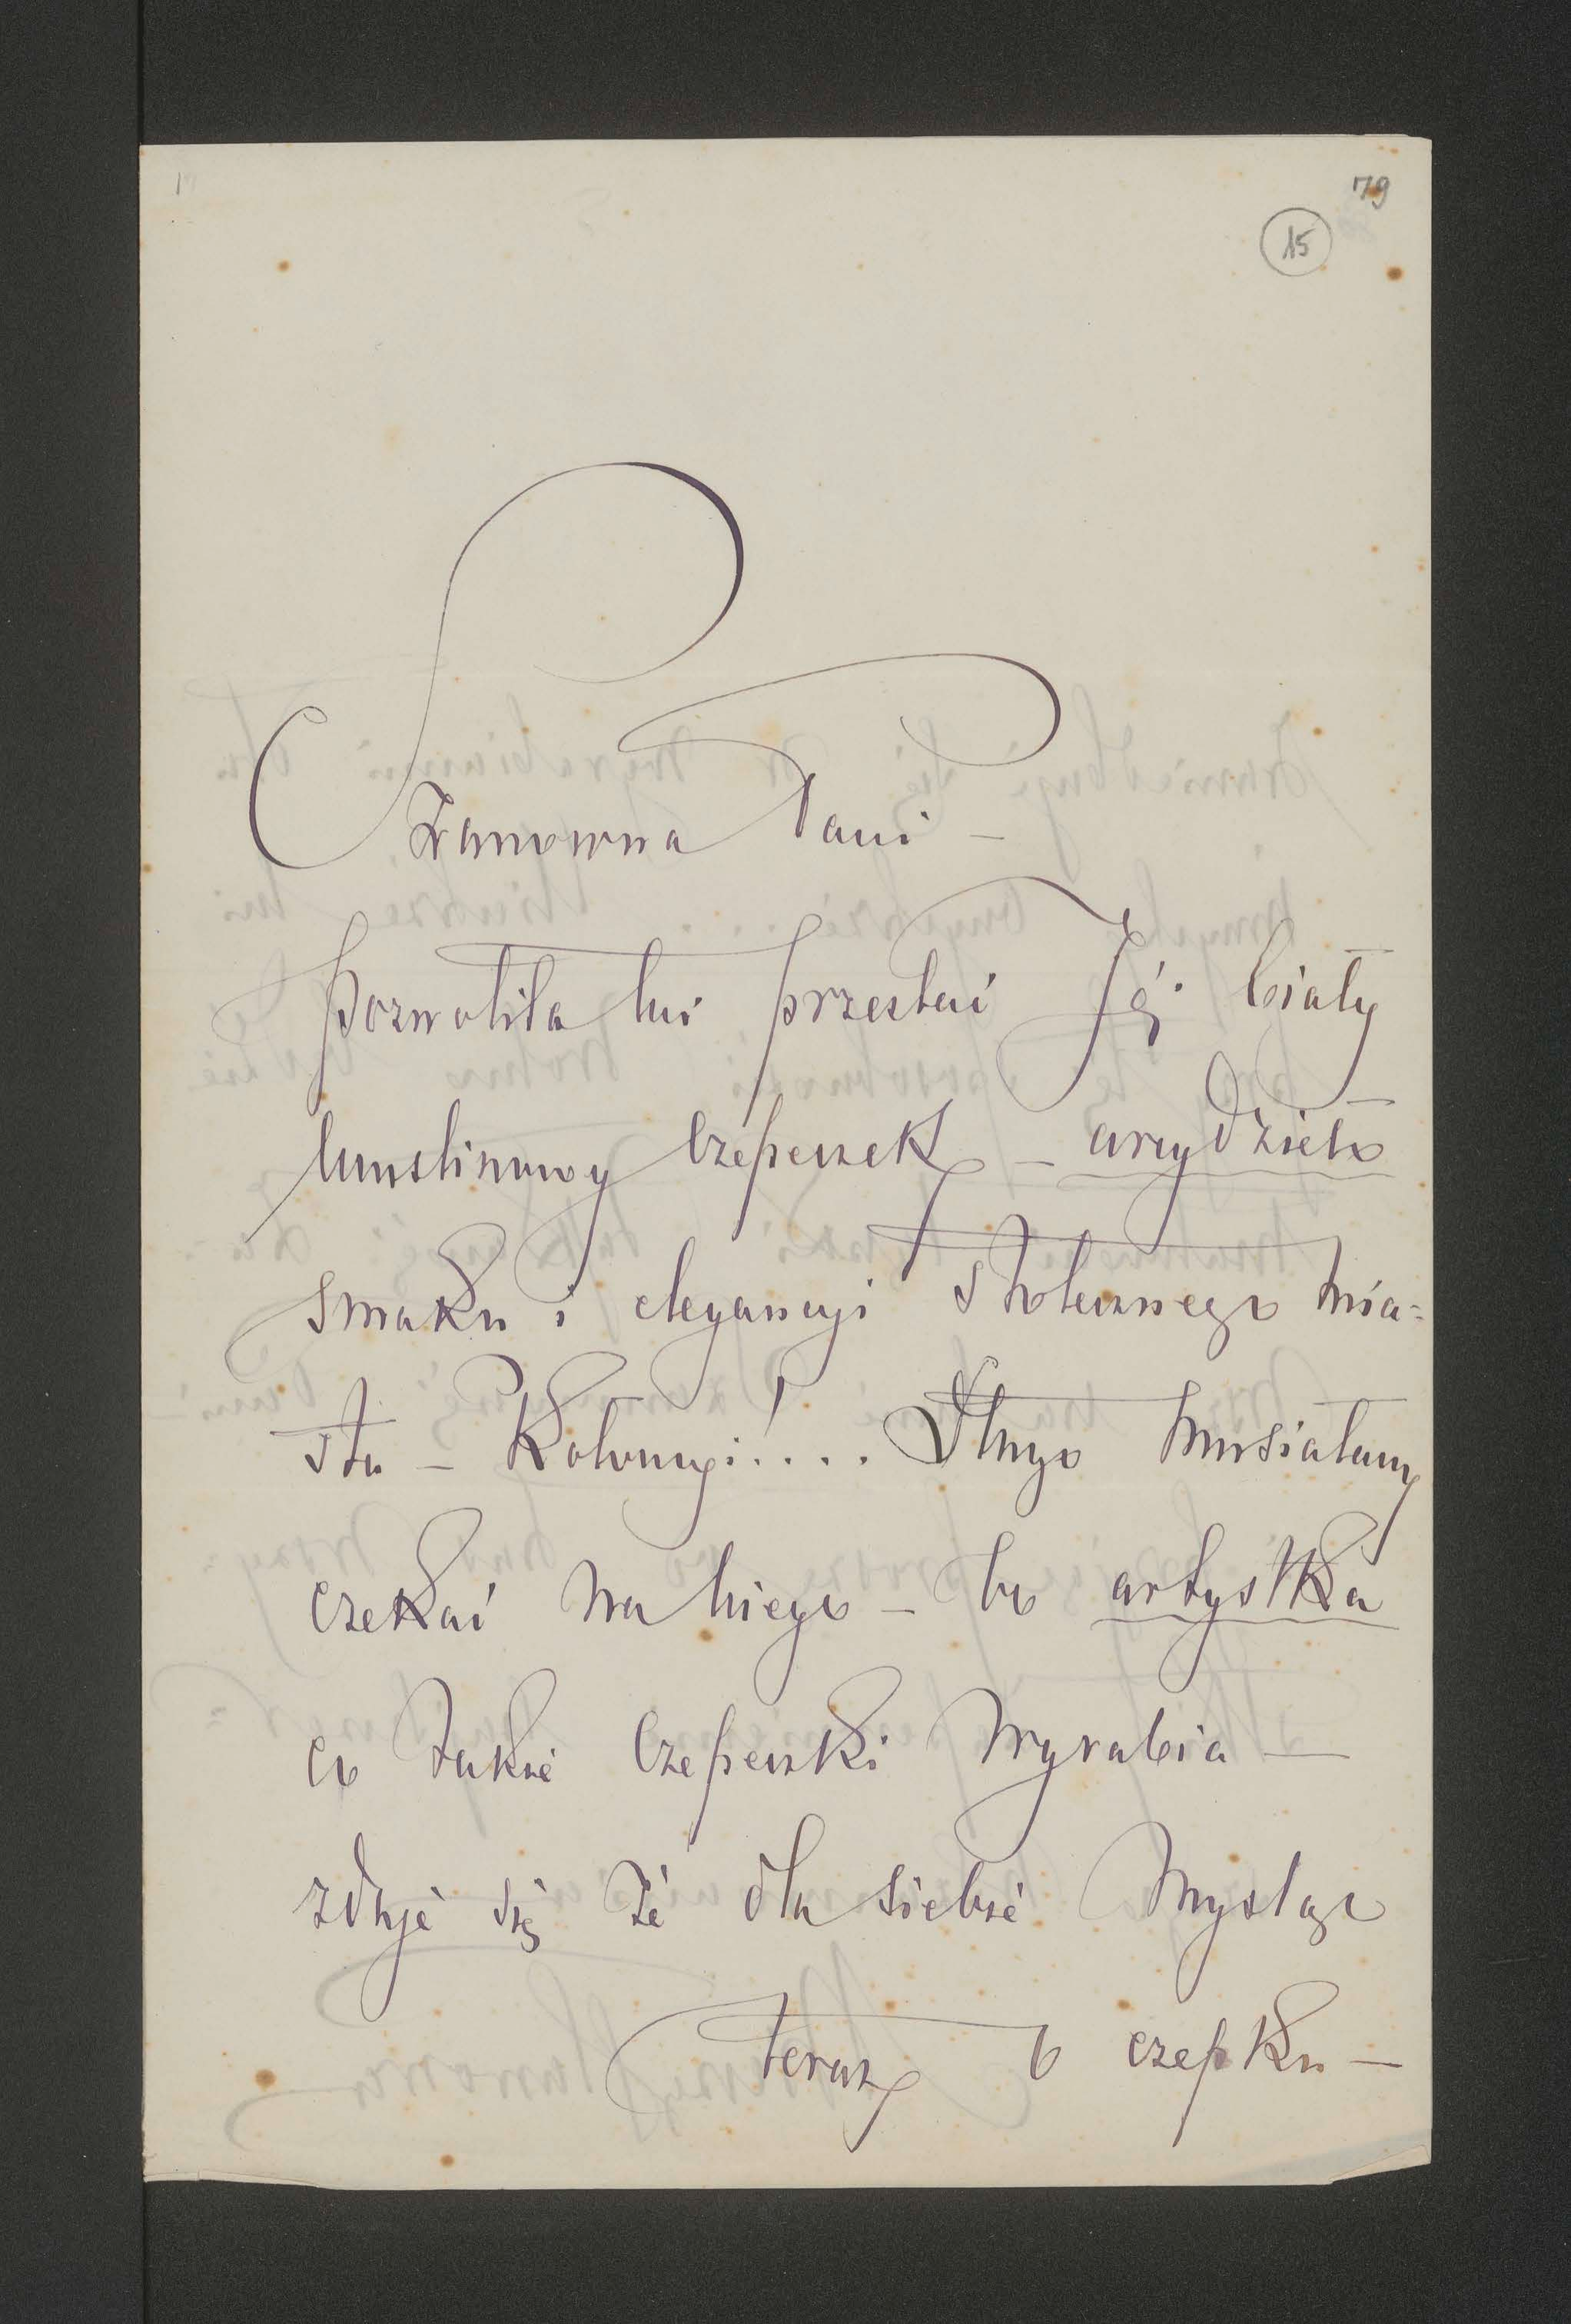 79
15
Szanowna Pani —
pozwoliła mi przesłać Jéj biały
muslinowy czepeczek — arcydzieło
smaku i elegancyi stołecznego mia=
sta — Kołomyi!.... Długo musiałam
czekać na niego — bo artystka
co takie czepeczki wyrabia —
zdaje się że dla siebie mysląc
teraz o czepku —